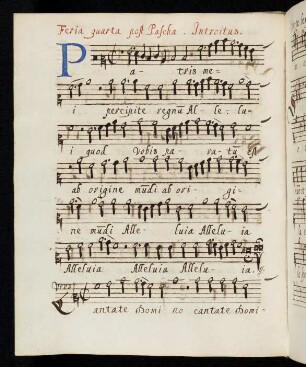 Feria quarta post Pascha. Introitus.
P
a- tris me-
i percipite regnũ Al- le- lu-
i quod vobis pa- ra- tũ
ab origine mũdi ab ori- gi-
ne mũdi Alle- luia Allelu- ia
Alleluia Alleluia Allelu- ia.
antate Domi- no cantate Domi-